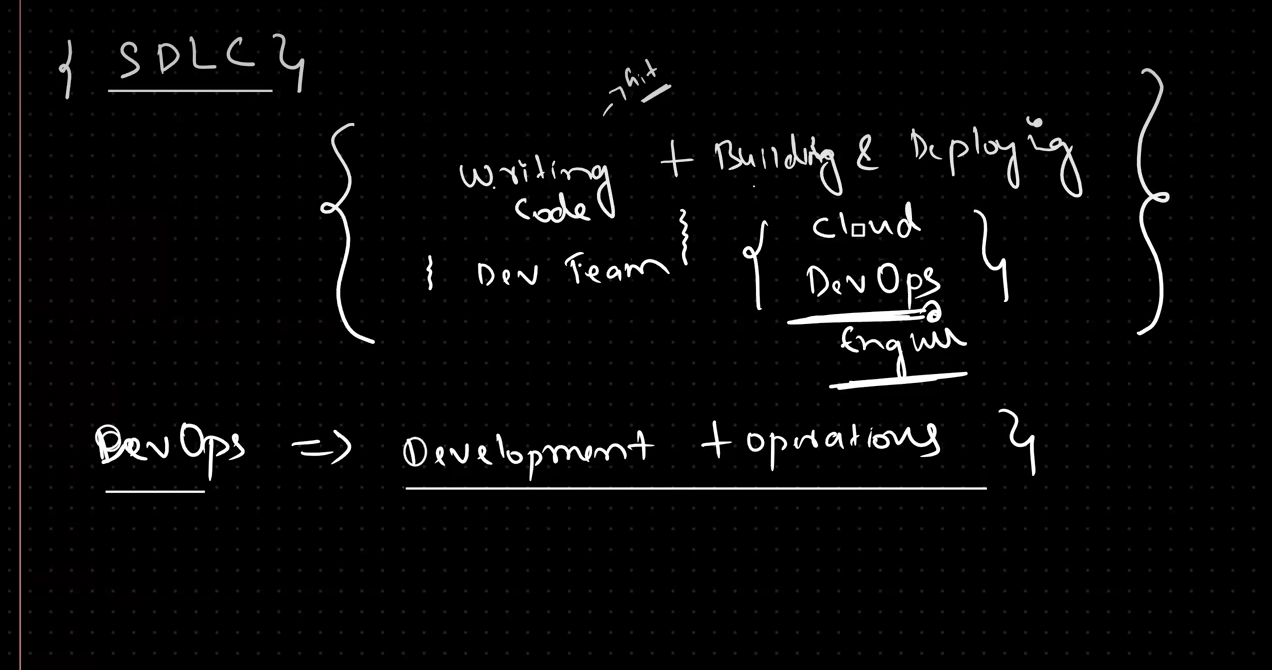 { SDLC }
→ Git
Writing + Building & Deploying
Code
{ Dev Team } { Cloud }
DevOps
Engineer
DevOps => Development + operations }